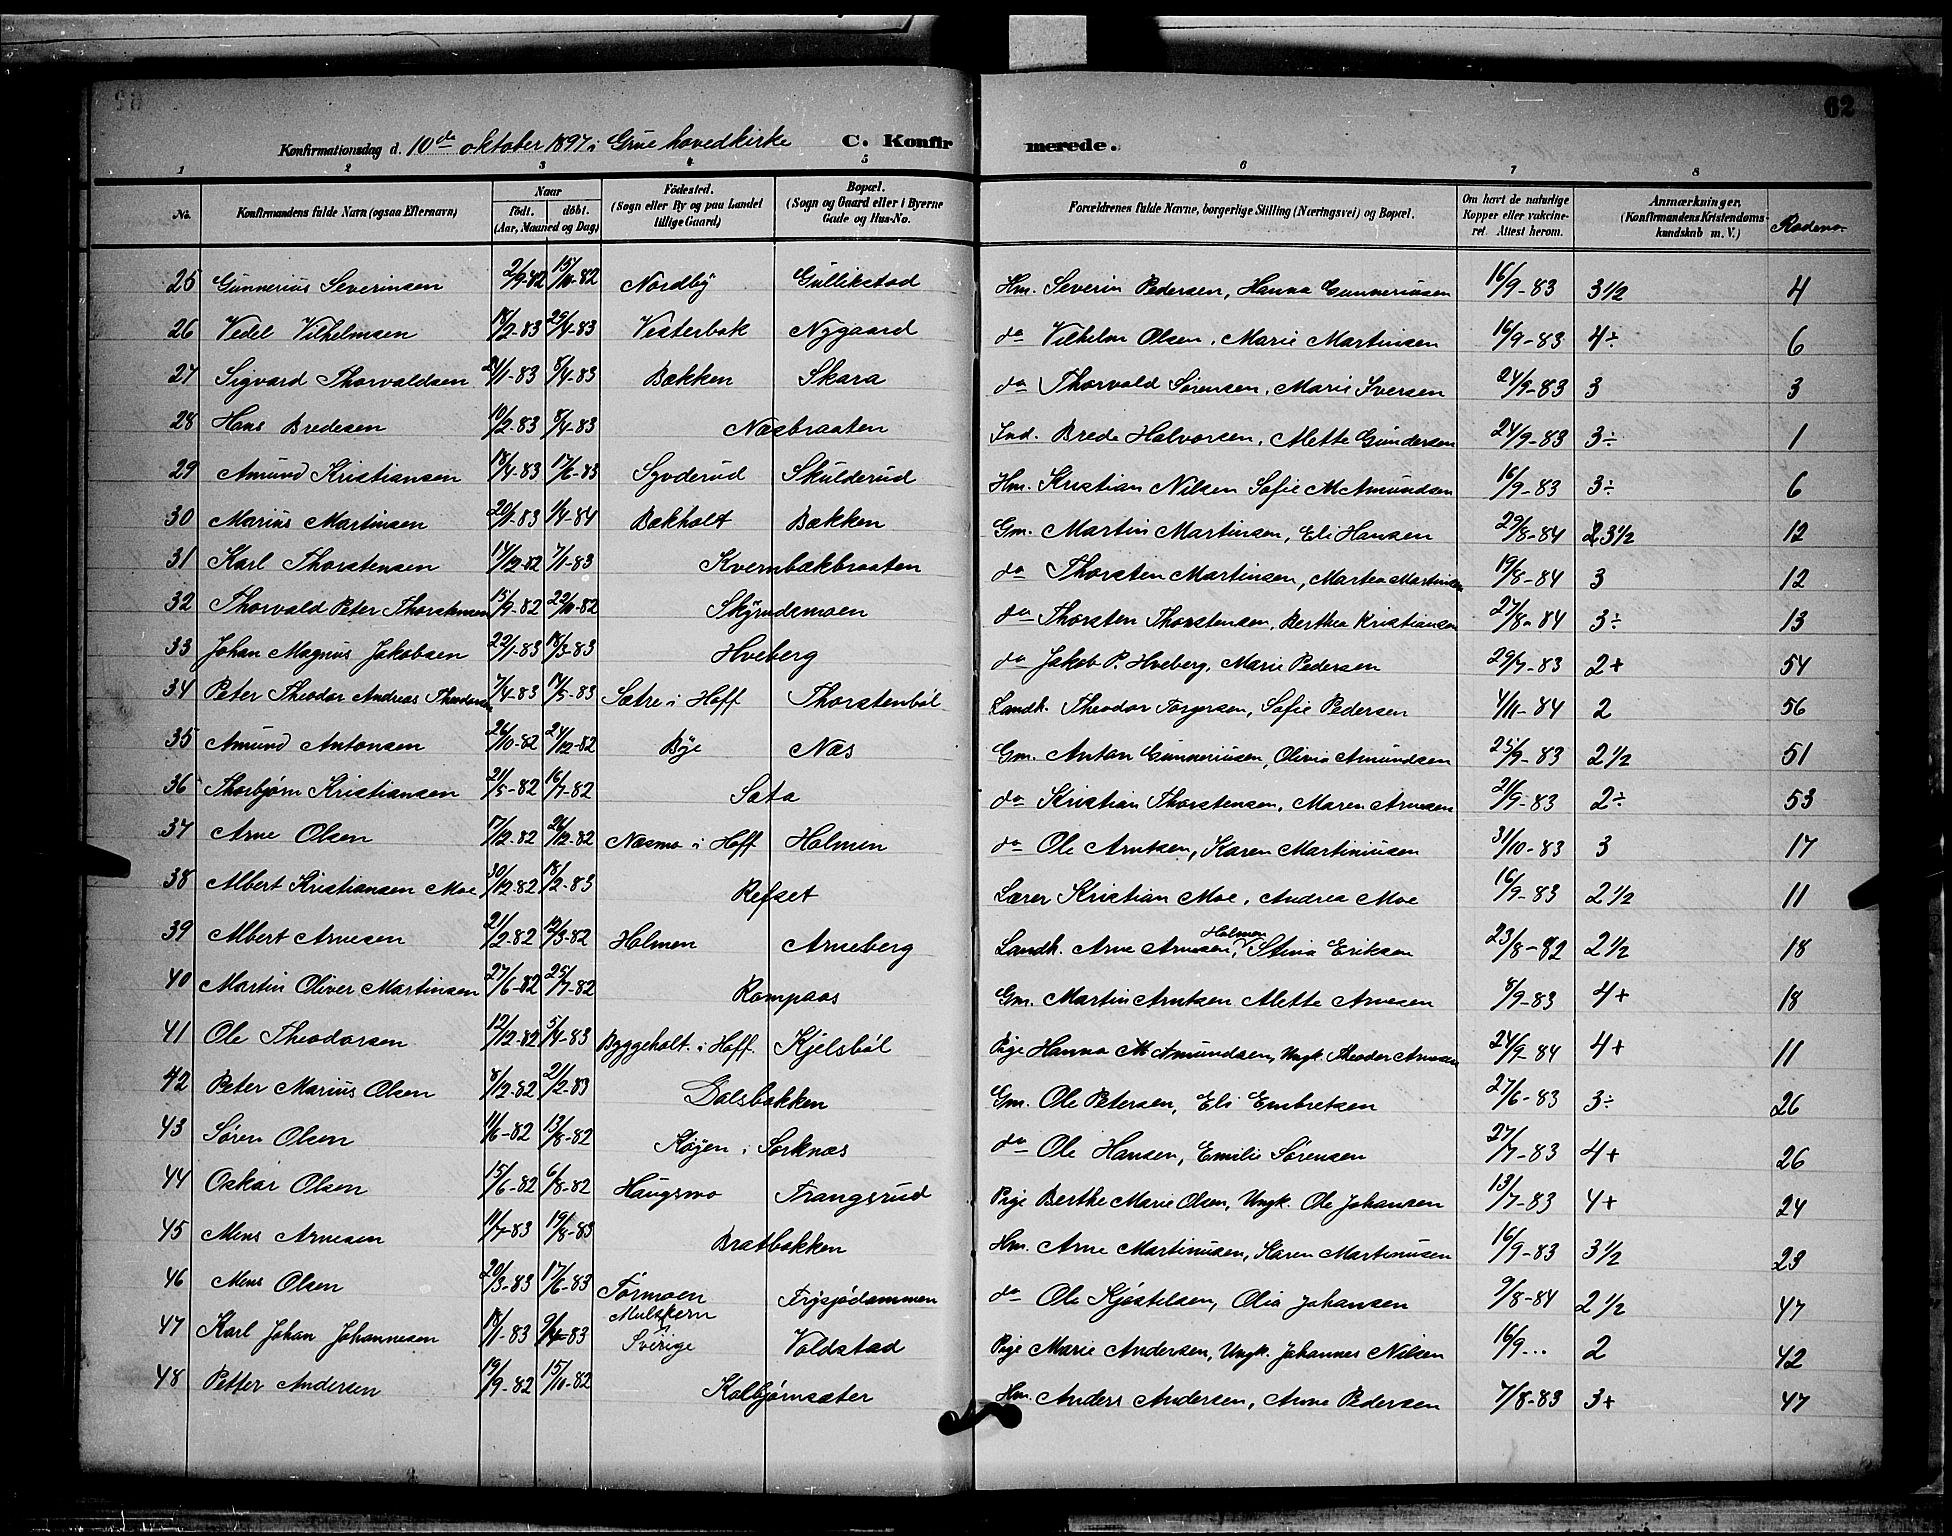 62
Konfirmationsdag d. 10de oktober 1897 i Grue hovedkirke C. Konfirmerede.
1 2 3 4 5 6 7 8
No. Konfirmandens fulde Navn (ogsaa Efternavn) Naar født. døbt. (Aar, Maaned og Dag) Födested. (Sogn eller By og paa Landet tillige Gaard) Bopæl. (Sogn og Gaard eller i Byerne Gade og Hus-No. Forældrenes fulde Navne, borgerlige Stilling (Næringsvei) og Bopæl. Om havt de naturlige Kopper eller vakcineret. Attest herom. Anmærkninger. (Konfirmandens Kristendomskundskab m. V.) Rodeno.
25 Gunnerius Severinsen 2/9-82 15/10-82 Nordby Gullikstad Hm. Severin Pedersen, Hanna Gunneriusen 16/9-83 3 1/2 4
26 Vedel Vilhelmsen 18/2-83 29/4-83 Vesterbak Nygaard do Vilhelm Olsen, Marie Martinsen 16/9-83 4÷ 6
27 Sigvard Thorvaldsen 21/1-83 8/4-83 Bækken Skara do Thorvald Sørensen, Maris Iversen 24/9-83 3 3
28 Hans Bredesen 10/2-83 8/4-83 Næsbraaten Ind. Brede Halvorsen, Mette Gundersen 24/9-83 3÷ 1
29 Amund Kristiansen 18/4-83 17/6-83 Syvderud Skulderud Hm. Kristian Nilsen Sofie M Amundsen 16/9-83 3÷ 6
30 Marius Martinsen 20/11-83 1/4-84 Bækholt Bækken Gm. Martin Martinsen, Eli Hansen 29/8-84 3 1/2 12
31 Karl Thorstensen 14/12-82 7/1-83 Kvernbækbraaten do Thorsten Martinsen, Martea Martinsen 19/8-84 3 12
32 Thorvald Peter Thorstensen 15/9-82 22/10-82 Skyrudsmoen do Thorsten Thorstensen, Berthea Kristiansen 27/8-84 3÷ 13
33 Johan Magnus Jakobsen 22/1-83 18/3-83 Hveberg do Jakob P. Hveberg, Marie Pedersen 29/7-83 2+ 54
34 Peter Theodor Andreas Theodorsen 7/4-83 14/5-83 Sætre i Hoff Thorstenböl Landh. Theodor Torgersen, Sofie Pedersen 4/11-84 2 56
35 Amund Antonsen 26/10-82 24/12-82 Bye Næs Gm. Anton Gunneriusen, Olivia Amundsen 25/9-83 2 1/2 51
36 Thorbjørn Kristiansen 21/5-82 16/7-82 Sata do Kristian Thorstensen, Maren Arnesen 21/9-83 2÷ 53
37 Arne Olsen 17/12-82 26/12-82 Næsmo i Hoff Holmen do Ole Arntsen, Karen Martiniusen 31/10-83 3 17
38 Albert Kristiansen Moe 30/12-82 18/2-83 Refset Lærer Kristian Moe, Andrea Moe 16/9-83 2 1/2 11
39 Albert Arnesen 21/2-82 12/3-82 Holmen Arneberg Landh. Arne Arnesen Holmen, Stina Eriksen 23/8-82 2 1/2 18
40 Martin Oliver Martinsen 27/6-82 25/7-82 Rompaas Gm. Martin Arntsen Alette Arnesen 8/9-83 4+ 18
41 Ole Theodorsen 12/12-82 5/4-83 Byggeholt i Hoff. Kjelsböl Pige Hanna M Amundsen, Ungk. Theodor Arnesen 24/9-84 4+ 11
42 Peter Marius Olsen 8/12-82 21/2-83 Dalsbakken Gm. Ole Petersen, Eli Embretsen 27/6-83 3÷ 26
43 Søren Olsen 11/6-82 13/8-82 Køyen i Sorknæs do Ole Hansen, Emilie Sörensen 27/7-83 4+ 26
44 Oskar Olsen 15/6-82 6/8-82 Haugsmo Trangsrud Pige Berthe Marie Olsen, Ungk. Ole Johansen 13/7-83 4+ 24
45 Mens Arnesen 11/7-83 19/8-83 Bratbakken Hm. Arne Martinusen, Karen Martinusen 16/9-83 3 1/2 23
46 Mens Olsen 20/3-83 17/6-83 Törmoen Frysjödammen do Ole Kjøstelsen, Olia Johansen 9/8-84 2 1/2 47
47 Karl Johan Johannesen 18/1-83 9/4-83 Mulskern Sverige Voldstad Pige Marie Andersen, Ungk. Johannes Nilsen 16/9... 2 42
48 Petter Andersen 19/9-82 15/10-82 Kolbjørnsæter Hm. Anders Andersen, Anne Pedersen 7/8-83 3+ 47